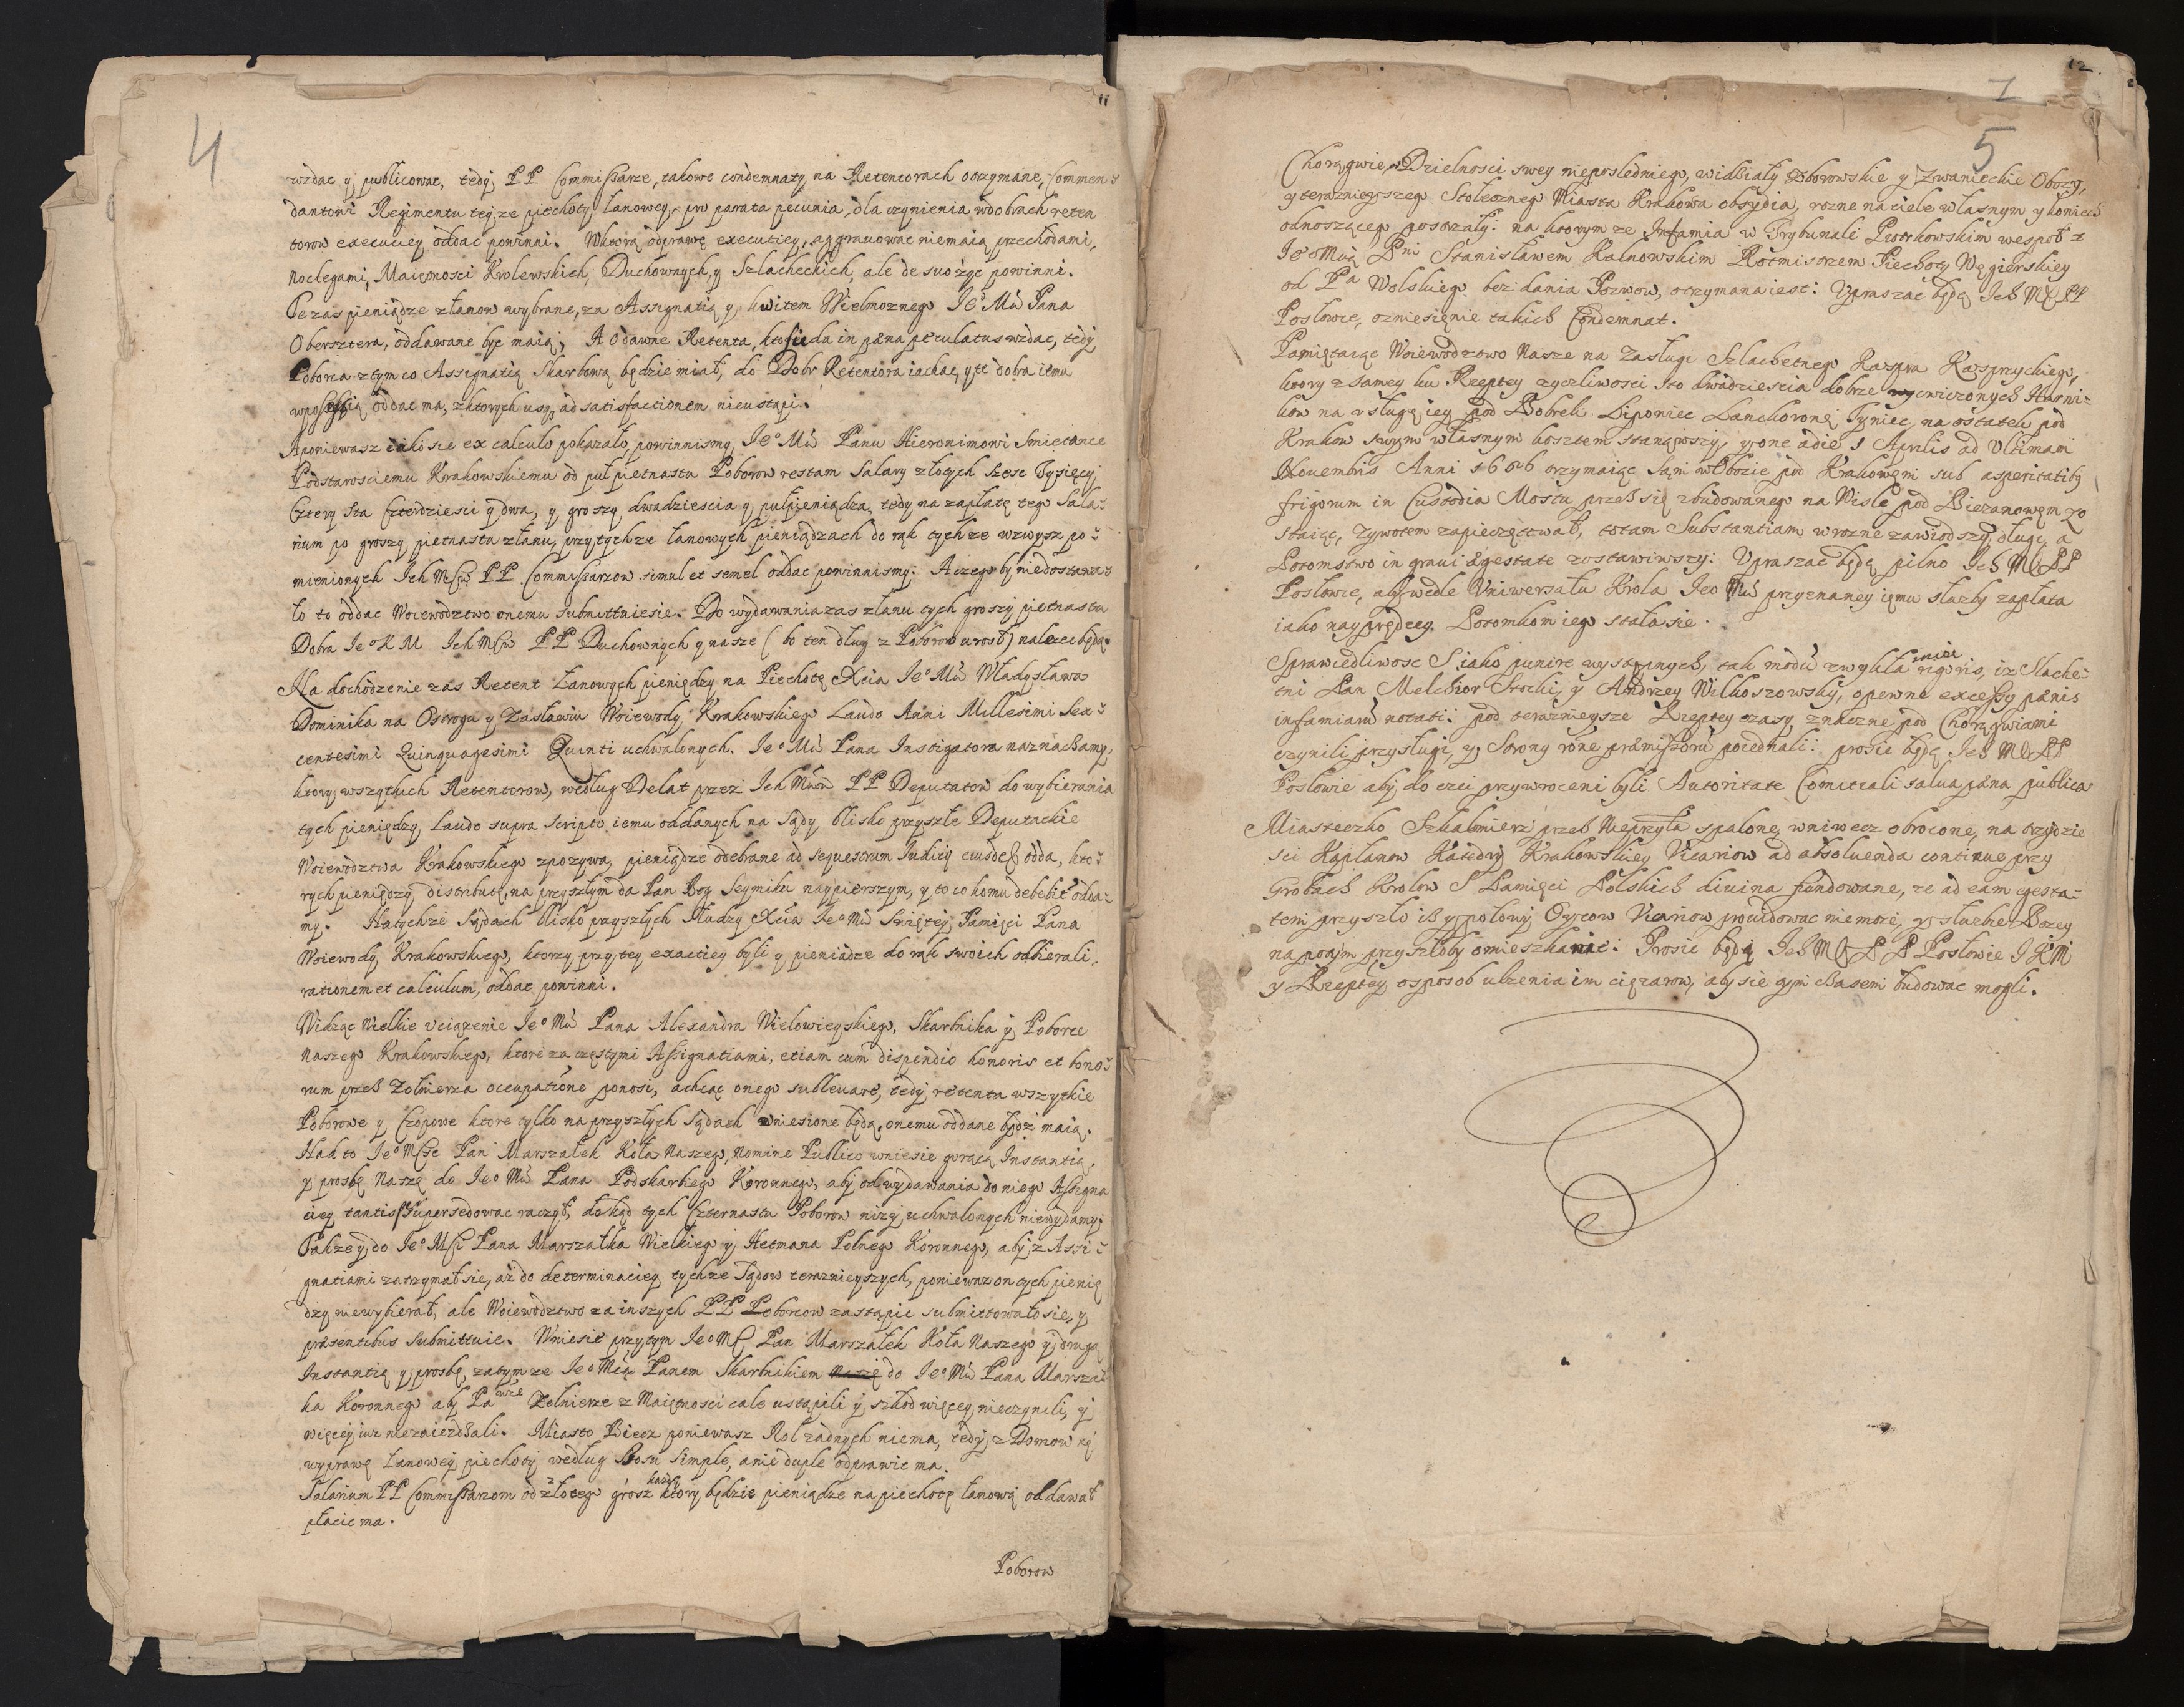 4
11
wzdac y publicowac, tedy PP Commissarze, takowe condemnaty na Retentorach otrzymane, Commen
dantowi Regimentu teyze piechoty Łanowey, pro parata pecunia, dla czynienia wdobrach reten
torow executiey oddac powinni. Wktorą odprawę executiey, aggrauowac niemaią przechodami,
Noclegami, Maiętnosci Krolewskich, Duchownych, y Szlacheckich, ale de suo zyc powinni.
Te zas pieniądze złanow wybrane, za Assignatią y kwitem Wielmoznego Ieo Mci Pana
Obersztera, oddawane byc maią; A odawne Retenta, kto sie da in pæna peculatus wzdac, tedy
Poborca ztym co Assignatią Skarbową będzie miał, do Dobr Retentora iachac, y te dobra iemu
wpossessią oddac ma, zktorych usq ad satisfactionem nieustąpi.
Aponiewasz iako sie ex calculo pokazało, powinnismy Ieo Mci Panu Hieronimowi Smietance
Podstarosciemu Krakowskiemu od puł pietnastu Poborow restam Salary złotych szesc Tysięcy
Cztery sta Czterdziesci y dwa, y groszy dwadziescia y pułpieniądza, tedy na zapłatę tego Sala-
rium po groszy pietnastu złanu, przytychze łanowych pieniądzach do rąk tychze wzwysz po-
mienionych Ich MCiow PP Commissarzow simul et semel oddac powinnismy: Aczego by niedostawa-
ło to oddac Woiewodztwo onemu submittuiesie. Do wydawania zas złanu tych groszy pietnastu
Dobra Ieo K M Ich MCiow PP Duchownych y nasze (bo ten dług z Poborow urosł) nalezec będą.
Na dochodzenie zas Retent Łanowych pieniędzy na Piechotę Xcia Ieo Mci Władysława
Dominika na Ostrogu y Zasławiu Woiewody Krakowskiego Laudo Anni Millesimi Sex-
centesimi Quinquagesimi Quinti uchwalonych. Ieo Mci Pana Instigatora naznaczamy,
ktory wszytkich Retentorow, według Delat przez Ich Mciow PP Deputatow do wybierania
tych pieniędzy Laudo supra scripto iemu oddanych na Sądy blisko przyszłe Deputackie
Woiewodztwa Krakowskiego zpozywa, pieniądze odebrane ad sequestrum Iudicij eiusdem odda, kto-
rych pieniędzy distributę, na przyszłym da Pan Bog Seymiku naypierszym, y to co komu debebit odda-
my. Natychze Sądach blisko przyszłych słudzy Xcia Ieo Mci Swiętey Pamięci Pana
Woiewody Krakowskiego, ktorzy przy tey exactiey byli y pieniądze do rąk swoich odbierali,
rationem et calculum, oddac powinni.
Widząc Wielkie vciązenie Ieo Mci Pana Alexandra Wielowieyskiego, Skarbnika y Poborce
Naszego Krakowskiego, ktore za częstymi Assignatiami, etiam cum dispendio honoris et bono-
rum przez Zołnierza occupatione ponosi, achcąc onego subleuare, tedy retenta wszytkie
Poborowe y Czopowe ktore tylko na przyszłych Sądach wniesione będą, onemu oddane bydz maią.
Nad to Ieo MSc Pan Marszałek Koła Naszego, Nomine Publico wniesie gorącą Instantią,
y prosbę Naszę do Ieo Mci Pana Podskarbiego Koronnego, aby od wydawania do niego Assigna
ciey tantisper supersedowac raczył, dokąd tych Czternastu Poborow nizey uchwalonych niewydamy:
Takze y do Ieo MSci Pana Marszałka Wielkiego y Hetmana Polnego Koronnego, aby z Assi-
gnatiami zatrzymał sie, az do determinaciey tychze Sądow teraznieyszych, poniewaz on tych pienię
dzy niewybierał, ale Woiewodztwo za inszych PP Poborcow zastąpic submittowało sie, y
præsentibus submittuie. Wniesie przytym Ieo MC Pan Marszałek Koła Naszego y drugą
Instantię y prosbę, zatymze Ieo Mcią Panem Skarbnikiem do Ieo Mci Pana Marszał
ka Koronnego aby Pa nowie Zołnierze z Maiętnosci cale ustąpili y szkod więcey nieczynili, y
więcey iuz niezaiezdzali. Miasto Biecz poniewasz Rol zadnych niema, tedy z Domow tę
wyprawę Łanowey piechoty według Szosu Simple, a nie duple odprawic ma.
Salarium PP Commissarzom od złotego grosz kazdy ktory będzie pieniądze na piechotę łanową oddawał
płacic ma.
Poborow
12
1
5
Chorągwie, Dzielnosci swey nieposledniego, widziały Zborowskie y Zwanieckie Obozy,
y teraznieyszego Stołecznego Miasta Krakowa obsydia, rozne na ciele własnym y koniech
odnoszącego postrzały: na ktorym ze Infamia w Trybunale Piotrkowskim wespoł z
Ieo Mcią Pni Stanisławem Kalnowskim Rotmistrzem Piechoty Węgierskiey
od Pa Wolskiego bez dania Pozwow, otrzymana iest: Vpraszac będą Ich MC PP
Posłowie, ozniesienie takich Condemnat.
Pamiętaiąc Woiewodztwo Nasze na Zasługi Szlachetnego Kaspra Kasprzyckiego,
ktory z samey ku Rzeptey zyczliwosci sto dwadziescia dobrze cwiczonych Harni-
kow na vsługę iey pod Dobrek Lipowiec Lanckoronę Tyniec, na ostatek pod
Krakow swym własnym kosztem stanąwszy, y one a die 1 Aprilis ad Vltimam
Nouembris Anni 1656 trzymaiąc sam w Obozie pod Krakowem sub asperitatiby
frigorum in Custodia Mostu przez się zbudowanego na Wisle pod Biezanowem zo
staiąc, zywotem zapieczętował, totam Substantiam w rozne zawiodszy długi, a
Potomstwo in graui egestate zostawiwszy: Vpraszac będą pilno Ich MC PP
Posłowie, aby wedle Vniwersału Krola Ieo Mci przyznaney iemu służby zapłata
iako nayprędzey Potomkom iego stała sie.
Sprawiedliwosc S. iako punire wystąpnych, tak modū zwykła rigoris, iz Slache-
tni Pan Melchior Stocki, y Andrzey Wilkoszowsky, opewne excessy pænis
infamiarū notati: pod teraznieysze Rzeptey czasy znaczne pod Chorągwiami
czynili przysługi, y Strony rone præmissorū poiednali: prosic będą Ich MC PP
Posłowie aby do czci przywroceni byli Autoritate Comitiali salua pæna publica
Miasteczko Szkalmierz przez Nieprzyia spalone, wniwecz obrocone, na trzydzie
sci Kapłanow Katedry Krakowskiey Vicariow ad absoluenda continue przy
Grobach Krolow S Pamięci Polskich diuina fundowane, ze ad eam egesta-
tem przyszło isz y połowy Oycow Vicariow prouidowac nie moze, y słuzbe Bozey
napotym przyszłoby omieszkanie: Prosic będą Ich MC PP Posłowie I K M
y Rzeptey osposob ulzenia im ciężarow, aby sie tym czasem budowac mogli.